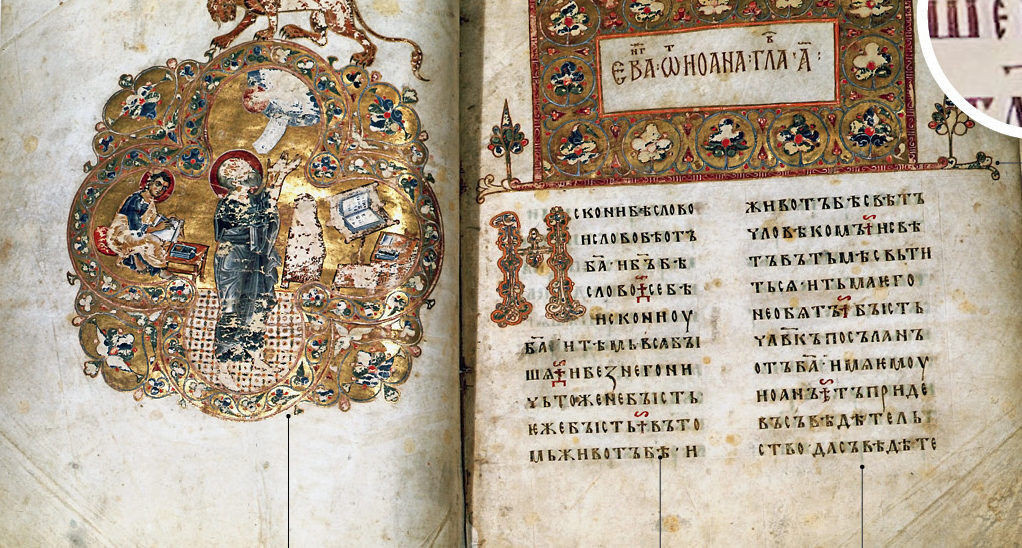 ЕВА · Ѡ ИОАНА · ГЛА · А ·
ИСКОНИ БѢ СЛОВО
И СЛОВО БѢ ОТЪ
БА · И БЪ БѢ
СЛОВО · СЕ БѢ
ИСКОНИ ОУ
БА · И ТѢМЬ ВСѦ БЫ
ШѦ · И БЕЗ НЕГО НИ
ЧЬТОЖЕ НЕ БЫСТЬ
ѤЖЕ БЫСТЬ · ВЪ ТО
МЬ ЖИВОТЪ БѢ · И
ЖИВОТЪ БѢ СВѢТЪ
ЧЛОВѢКОМЪ · И СВѢ
ТЪ ВЪ ТЬМѢ СВЬТИ
ТЬСѦ · И ТЬМА ѤГО
НЕ ОБѦТЪ · БЫСТЬ
ЧЛВКЪ ПОСЪЛАНЪ
ОТЪ БА · ИМѦ ѤМОУ
ИОАНЪ · ТЪ ПРИДЕ
ВЪ СЪВѢДѢТЕЛЬ
СТВО · ДА СЪВѢДѢТЕ